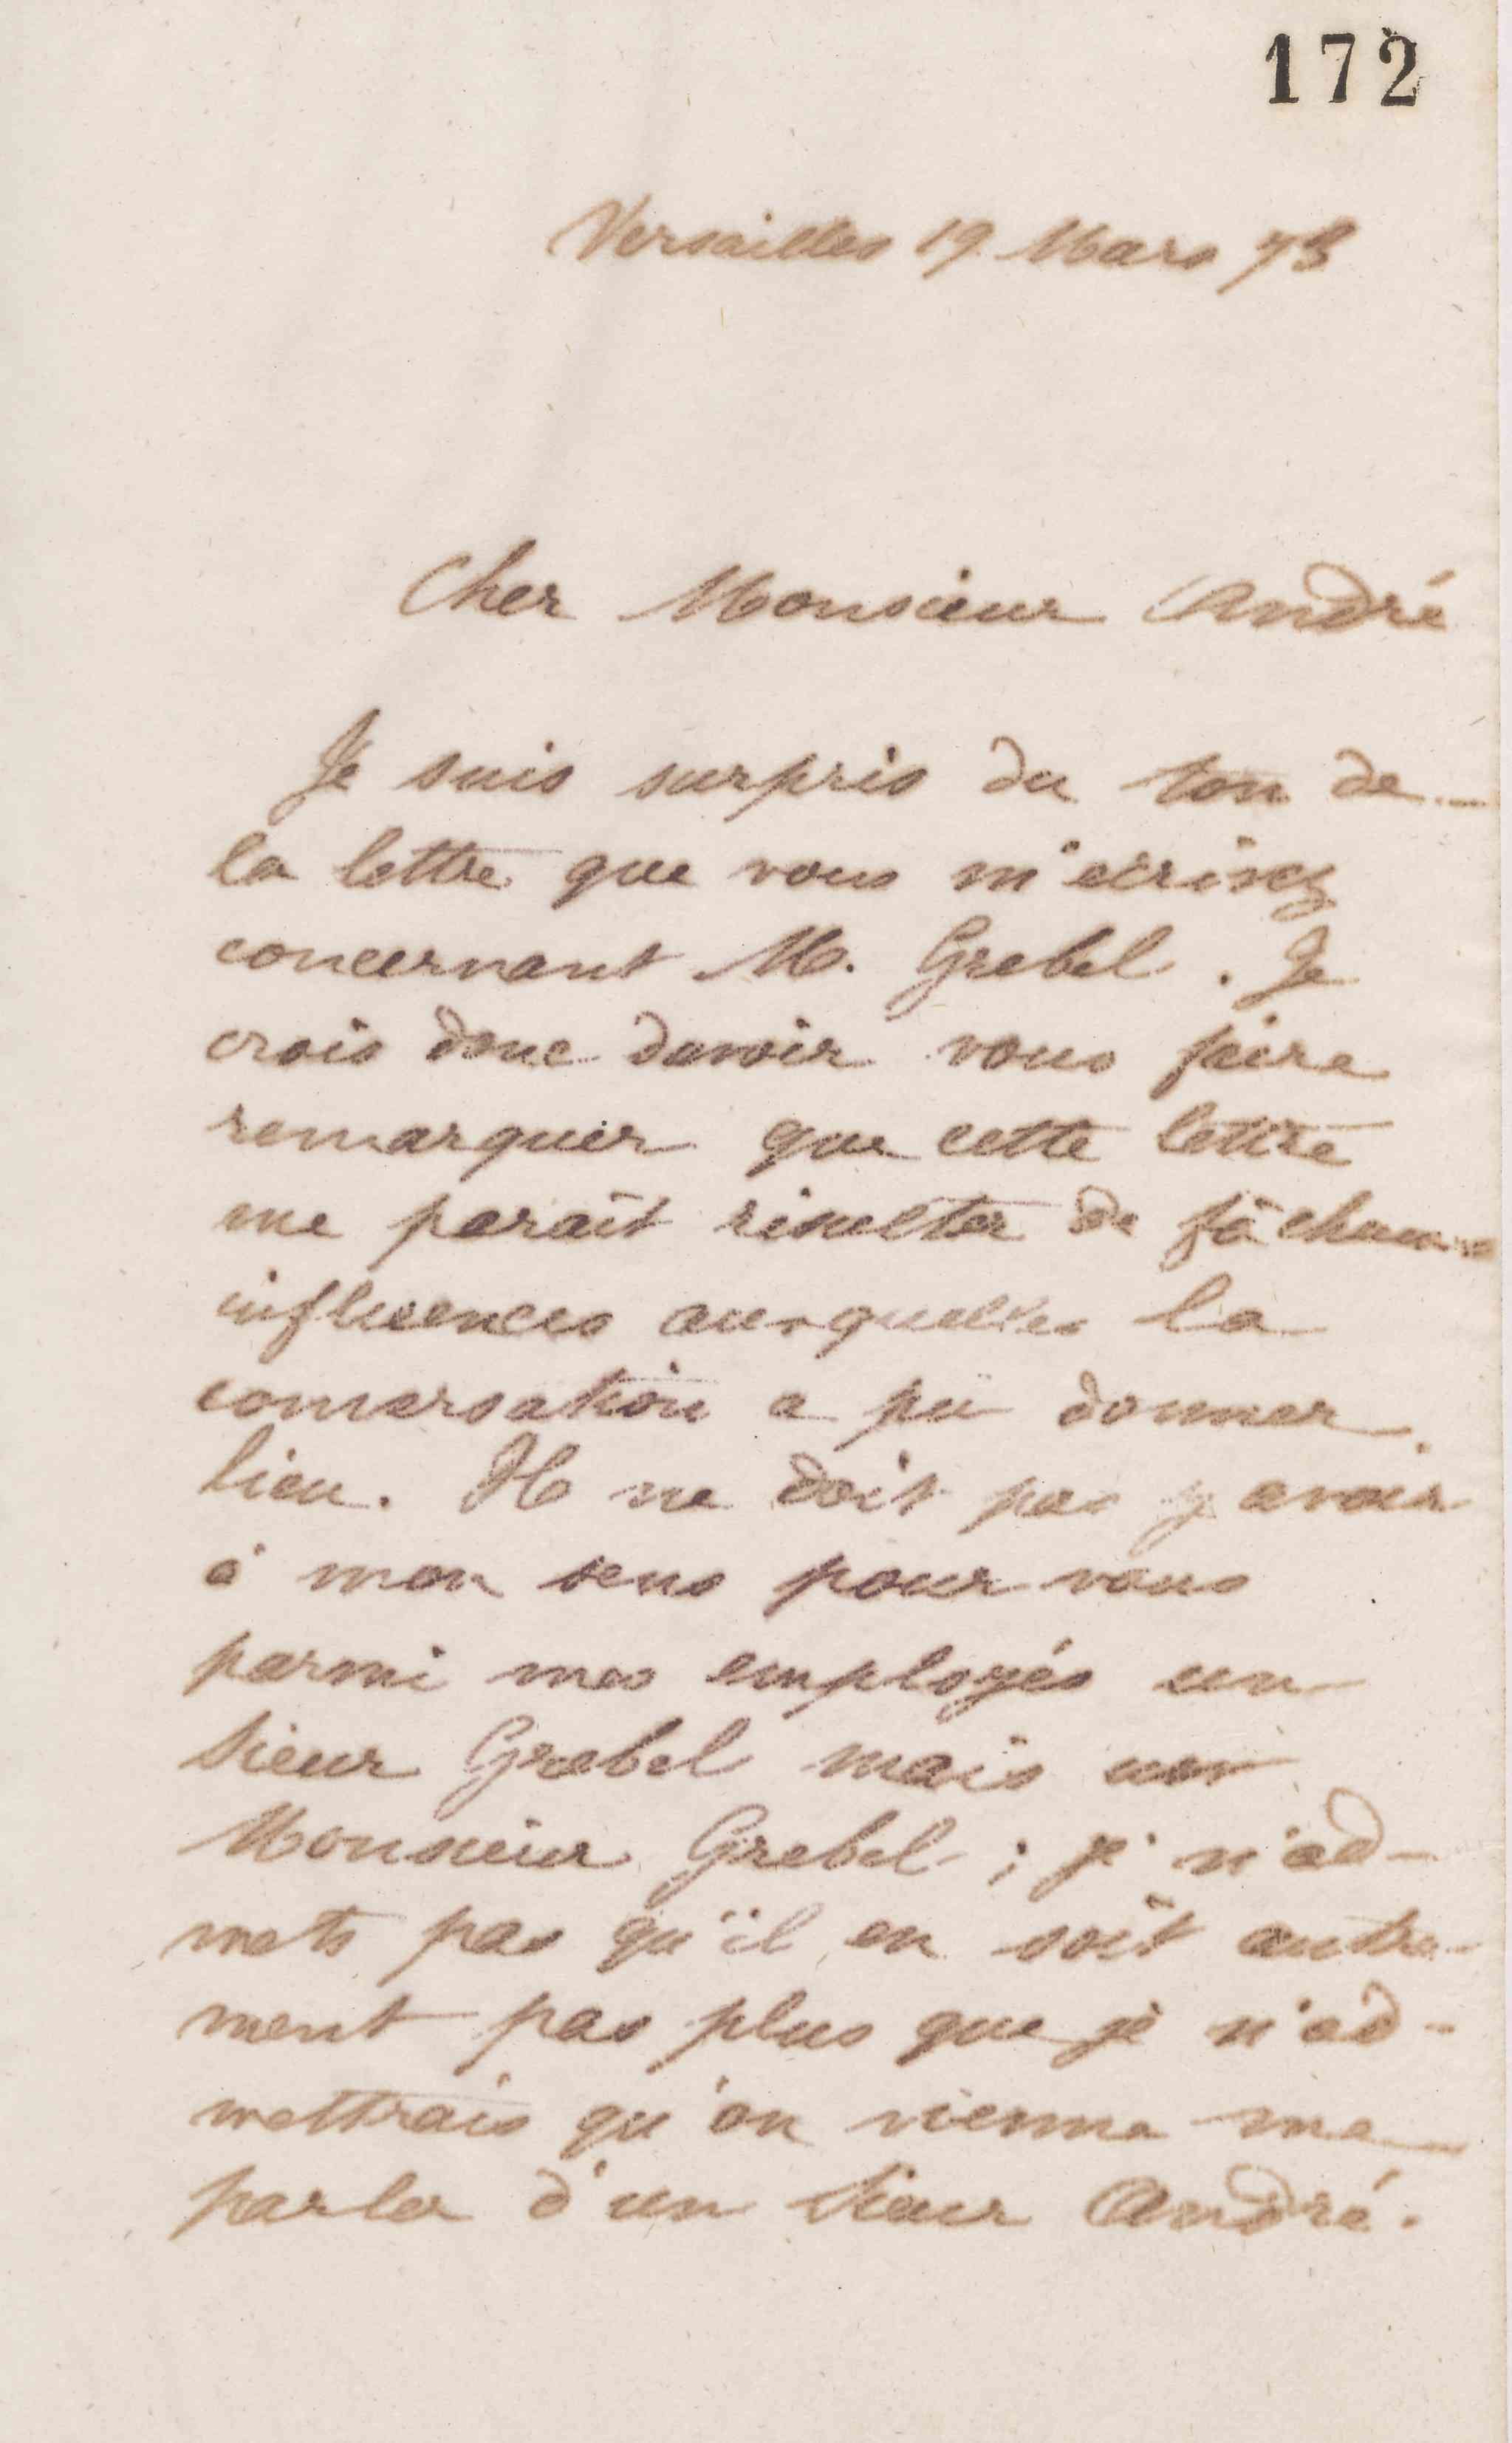 172
Versailles 19 Mars 73
Cher Monsieur André
Je suis surpris du ton de
la lettre que vous m'écrivez
concernant M. Grebel. Je
crois donc devoir vous faire
remarquer que cette lettre
me paraît résulter de fâcheuses
influences auxquelles la
conversation a pu donner
lieu. Il ne doit pas y avoir
à mon sens pour vous
parmi mes employés un
sieur Grebel mais un
Monsieur Grebel ; je n'ad-
mets pas qu'il en soit autre-
ment pas plus que je n'ad-
mettrais qu'on vienne me
parler d'un sieur André.